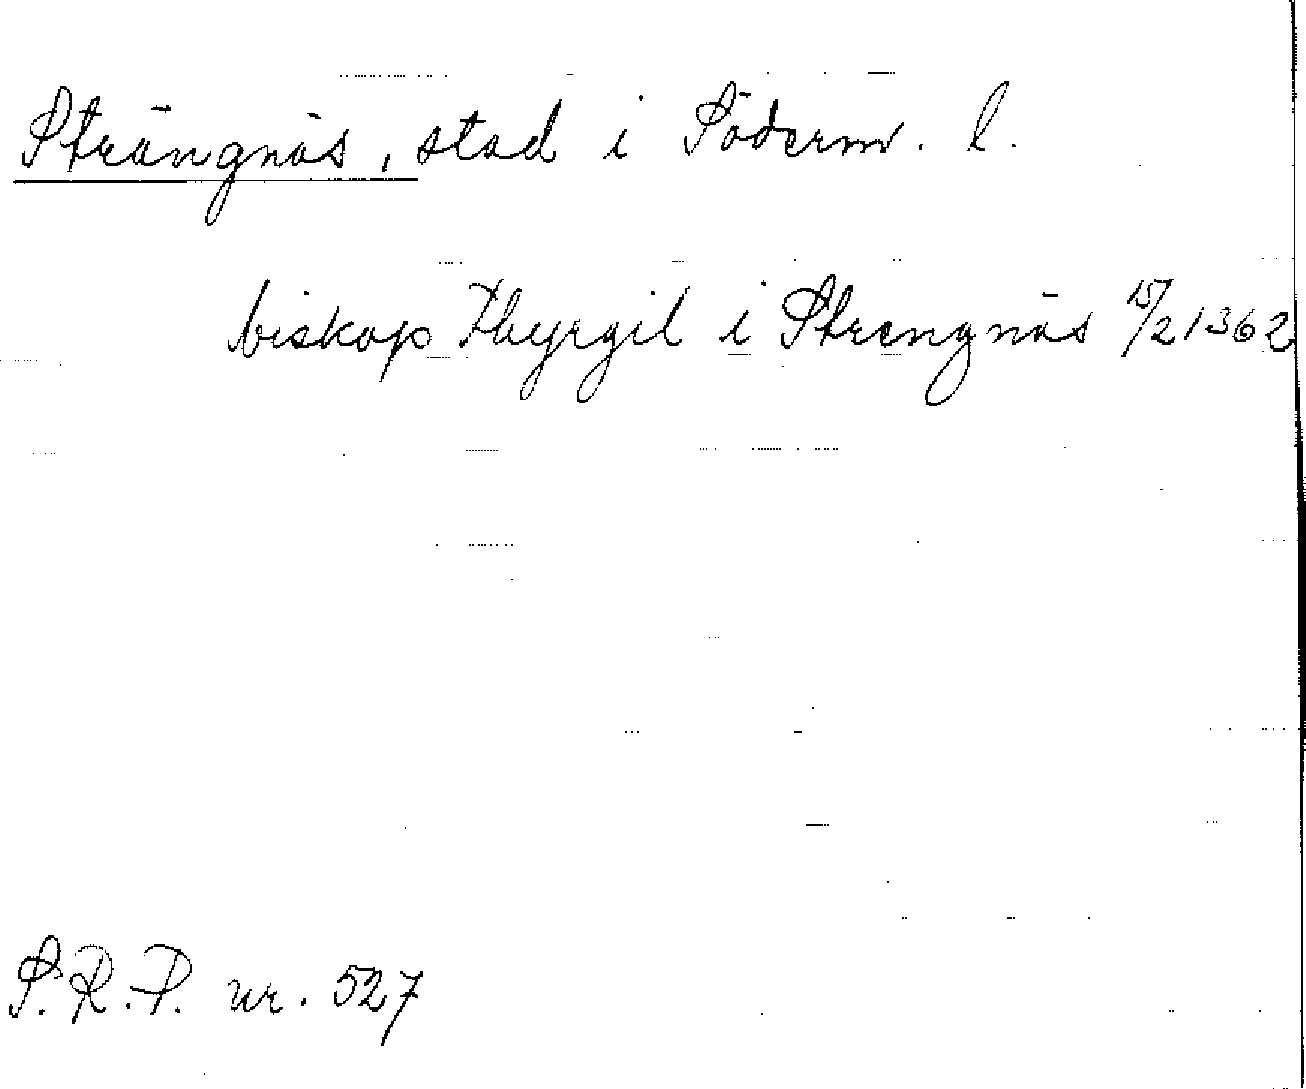 Strängnäs, stad i Söderm. l.
biskop Thyrgil i Strengnäs 15/2 1362
S.R.P. nr. 527